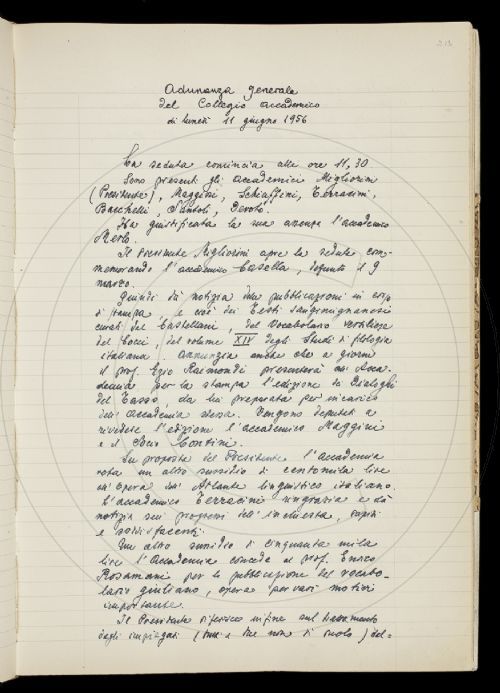 213
Adunanza generale
del Collegio accademico
di lunedì 11 giugno 1956
La seduta comincia alle ore 11,30
Sono presenti gli accademici Migliorini
(Presidente), Maggini, Schiaffini, Terracini,
Bacchelli, Santoli, Devoto.
Ha giustificata la sua assenza l'accademico
Merlo.
Il Presidente Migliorini apre la seduta com-
memorando l'accademico Casella, defunto il 9
marzo.
Quindi dà notizia delle pubblicazioni in corso
di stampa e cioè dei Testi sangimignanesi
curati dal Castellani, del Vocabolario versiliese
del Cocci, del volume XIV degli Studi di filologia
italiana. Annunzia anche che a giorni
il prof. Ezio Raimondi presenterà all'Acca-
demia per la stampa l'edizione dei Dialoghi
del Tasso, da lui preparata per incarico
dell'Accademia stessa. Vengono deputati a
rivedere l'edizione l'accademico Maggini
e il Socio Contini.
Su proposta del Presidente l'accademia
vota un altro sussidio di centomila lire
all'opera dell'Atlante linguistico italiano.
L'accademico Terracini ringrazia e dà
notizia sui progressi dell'inchiesta, rapidi
e soddisfacenti.
Un altro sussidio di cinquanta mila
lire l'Accademia concede al prof. Enrico
Rosamani per la pubblicazione del vocabo-
lario giuliano, opera per vari motivi
importante.
Il Presidente riferisce infine sul trattamento
degli impiegati (tre e tre non di ruolo) del=